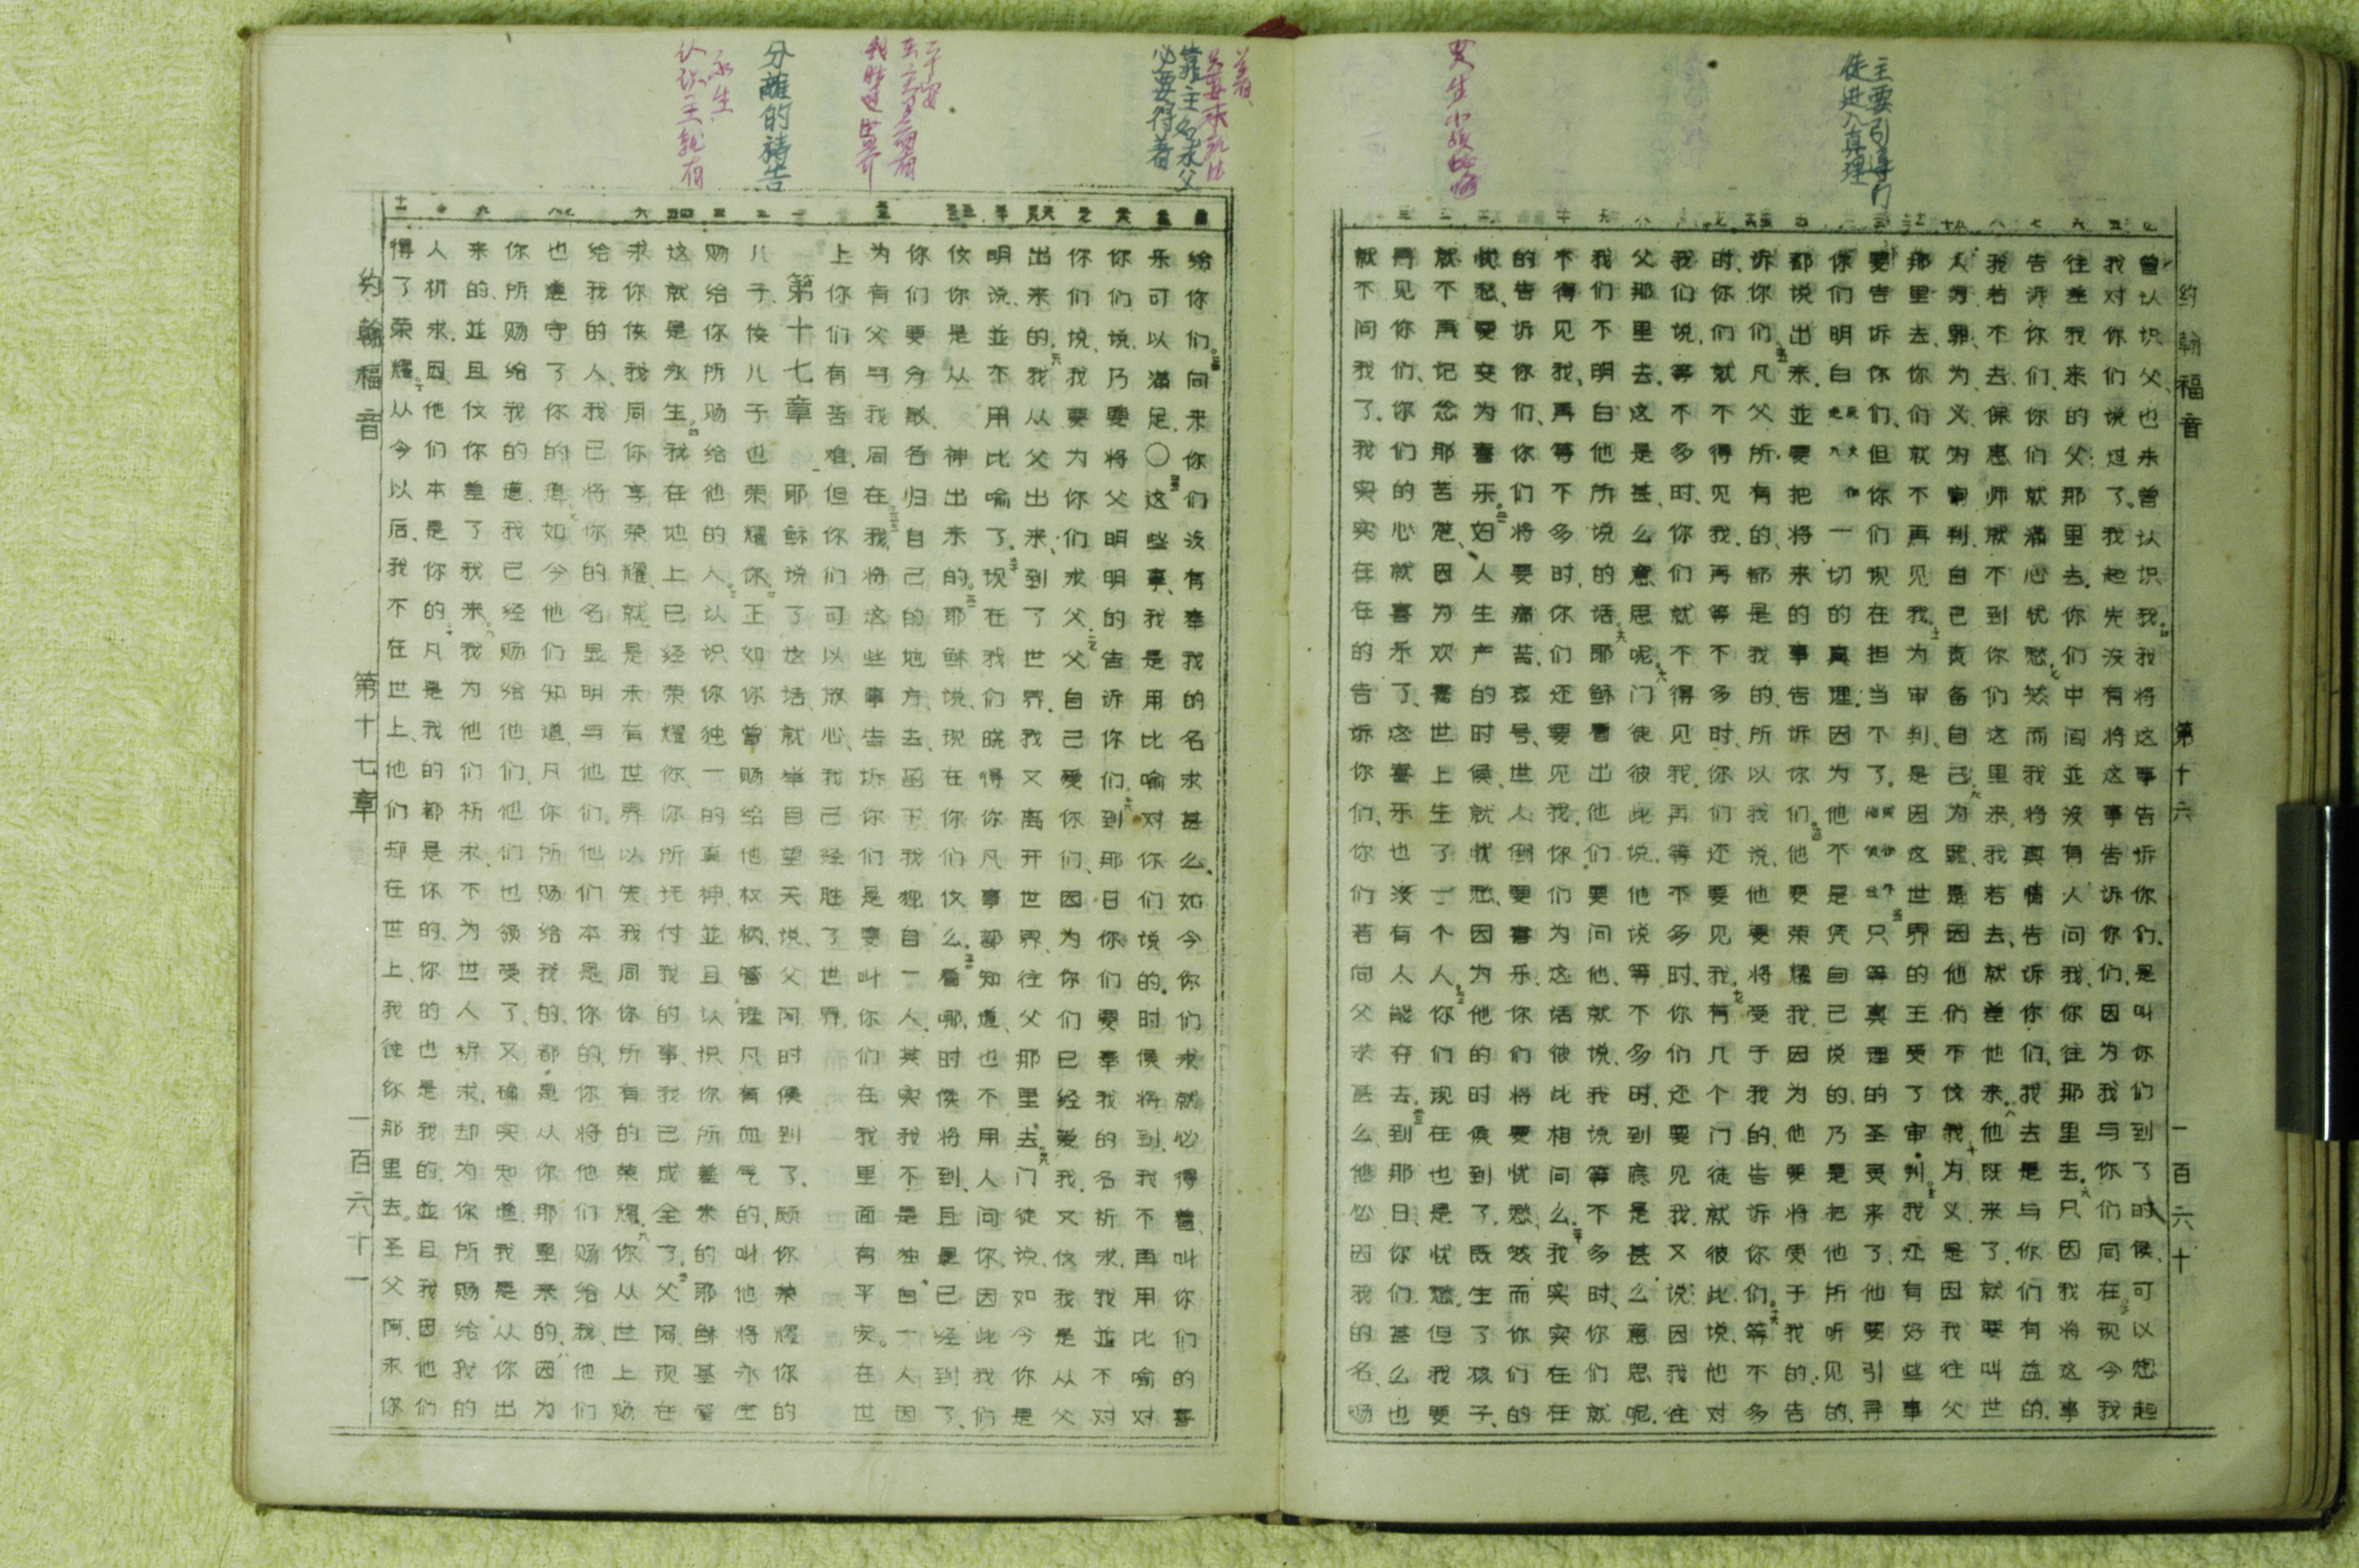 主要引导门
徒进入真理
约翰福音 第十六 一百六十
曾认识父、也未曾认识我。四我将这事告诉你们、是叫你们到了时候、可以想起
我对你们说过了。我起先没有将这事告诉你们、因为我与你们同在。五现今我
往差我来的父那里去、你们中间並没有人问我、你往那里去。六只因我将这事
告诉你们、你们就满心忧愁。七然而我将真情告诉你们、我去是与你们有益的、
我若不去、保惠师就不到你们这里来、我若去、就差他来。八他既来了、就要叫世
人为罪、为义、为审判、自己责备自己。九为罪、是因他们不信我。十为义、是因我往父
那里去、你们就不再见我。十一为审判、是因这世界的王受了审判。十二我还有好些事
要告诉你们、但你们现在担当不了。十三只等真理的圣灵来了、他要引导
你们明白一切的真理、因为他不是凭自己说的、乃是把他所听见的、
都说出来、並要把将来的事告诉你们。十四他要荣耀我、因为他要将受于我的告
诉你们。十五凡父所有的、都是我的、所以我说、他要将受于我的告诉你们。十六等不多
时、你们就不得见我、再等不多时、你们还要见我。十七有几个门徒就彼此说、他对
我们说、等不多时、你们就不得见我、再等不多时、你们还要见我、又说、因我往
父那里去、这是甚么意思呢。十八门徒彼此说、他说等不多时、到底是甚么意思呢、
我们不明白他所说的话。十九耶稣看出他们要问他、就说、我说等不多时、你们就
不得见我、再等不多时、你们还要见我、你们为这话彼此相问么。二十我实实在在
的告诉你们、你们将要痛苦、哀号、世人倒要喜乐、你们将要忧愁、然而你们的
忧愁、要变为喜乐。二一妇人生产的时候、就忧愁、因为他的时候到了、既生了孩子、
就不再记念那苦楚、因为欢喜世上生了一个人。二二你们现在也是忧愁、但我要
再见你们、你们的心就喜乐了、这喜乐、也没有人能夺去。二三到那日、你们甚么也
就不问我了、我实实在在的告诉你们、你们若向父求甚么、他必因我的名、赐
靠主名求父
必要得着
平安
我胜过世界
分離的祷告
永生
认识主就有
给你们。二四向来你们没有奉我的名求甚么、如今你们求就必得着、叫你们的喜
乐可以满足。〇二五这些事、我是用比喻对你们说的、时候将到、我不再用比喻对
你们说、乃要将父明明的告诉你们。二六到那日你们要奉我的名祈求、我並不对
你们说、我要为你们求父。二七父自己爱你们、因为你们已经爱我、又信我是从父
出来的。二八我从父出来、到了世界、我又离开世界、往父那里去。二九门徒说、如今你是
明说、並不用比喻了。三十现在我们晓得你凡事都知道、也不用人问你、因此我们
信你是从神出来的。三一耶稣说、现在你们信么。三二看哪、时候将到、且是已经到了、
你们要分散、各归自己的地方去、留下我独自一人、其实我不是独自一人、因
为有父与我同在。三三我将这些事告诉你们、是要叫你们在我里面有平安。在世
上你们有苦难、但你们可以放心、我已经胜了世界。
第十七章
一耶稣说了这话、就举目望天说、父阿、时候到了、愿你荣耀你的
儿子、使儿子也荣耀你。二正如你曾赐给他权柄、管理凡有血气的、叫他将永生
赐给你所赐给他的人。三认识你独一的真神、並且认识你所差来的耶稣基督、
这就是永生。四我在地上已经荣耀你、你所托付我的事、我已成全了。五父阿、现在
求你使我同你享荣耀、就是未有世界以先、我同你所有的荣耀。六你从世上赐
给我的人、我已将你的名显明与他们、他们本是你的、你将他们赐给我、他们
也遵守了你的道。七如今他们知道、凡你所赐给我的、都是从你那里来的、八因为
你所赐给我的道、我已经赐给他们、他们也领受了、又确实知道、我是从你出
来的、並且信你差了我来。九我为他们祈求、不为世人祈求、却为你所赐给我的
人祈求、因他们本是你的。十凡是我的都是你的、你的也是我的、並且我因他们
得了荣耀。十一从今以后、我不在世上、他们却在世上、我往你那里去。圣父阿、求你
约翰福音 第十七章 一百六十一